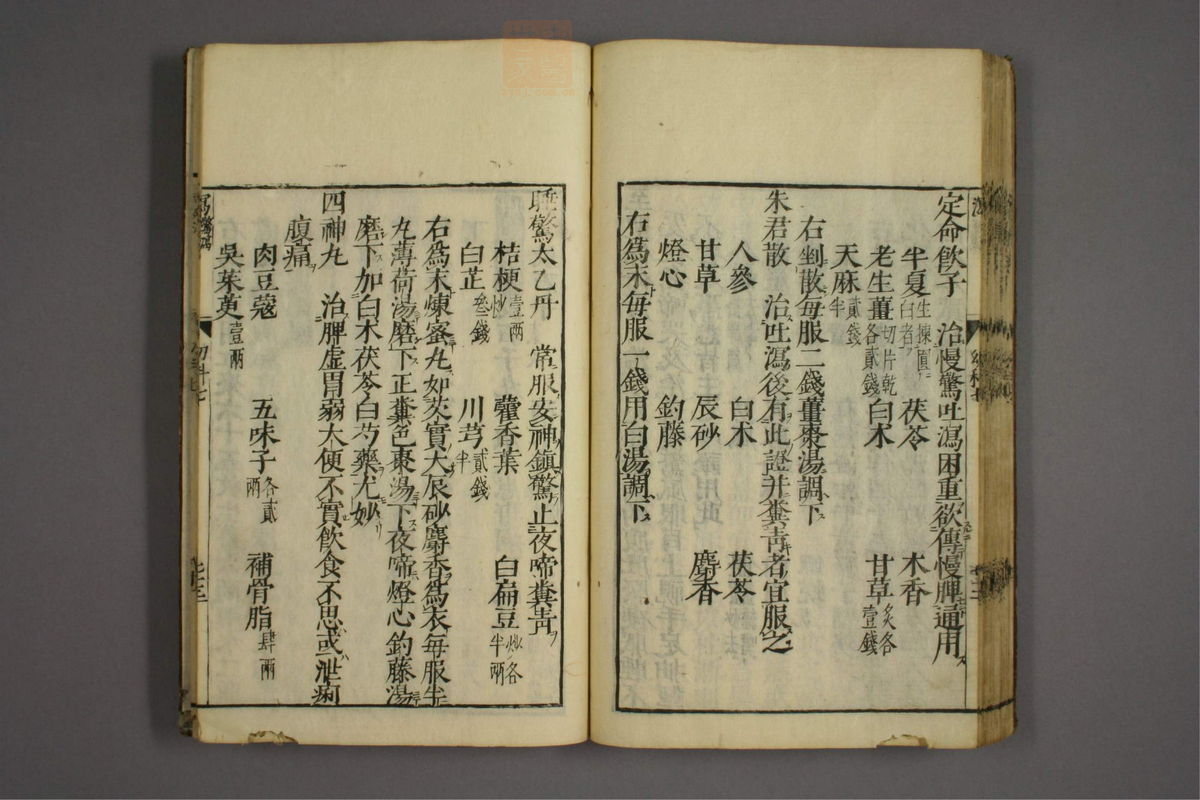 定命飲子　治慢驚吐瀉困重欲傳慢脾通用
半夏生揀圓白者　茯苓　木香
老生薑切片乾各貳錢　白朮　甘草炙各壹錢
天麻貳錢半
右剉散每服二錢薑棗湯調下
朱君散　治吐瀉後有此證并糞靑者宜服之
人參　白朮　茯苓
甘草　辰砂　麝香
燈心　釣藤
右爲末每服一錢用白湯調下
睡驚太乙丹　常服安神鎮驚止夜啼糞靑
桔梗壹兩炒　藿香葉　白扁豆炒各半兩
白芷叁錢　川芎貳錢半
右爲末煉蜜丸如芡實大辰砂麝香爲衣每服半
丸薄荷湯磨下正糞色棗湯下夜啼燈心釣藤湯
磨下加白朮茯苓白芍藥尤妙
四神丸　治脾虛胃弱大便不實飮食不思或泄痢
腹痛
肉豆蔻　五味子各貳兩　補骨脂肆兩
吳茱萸壹兩